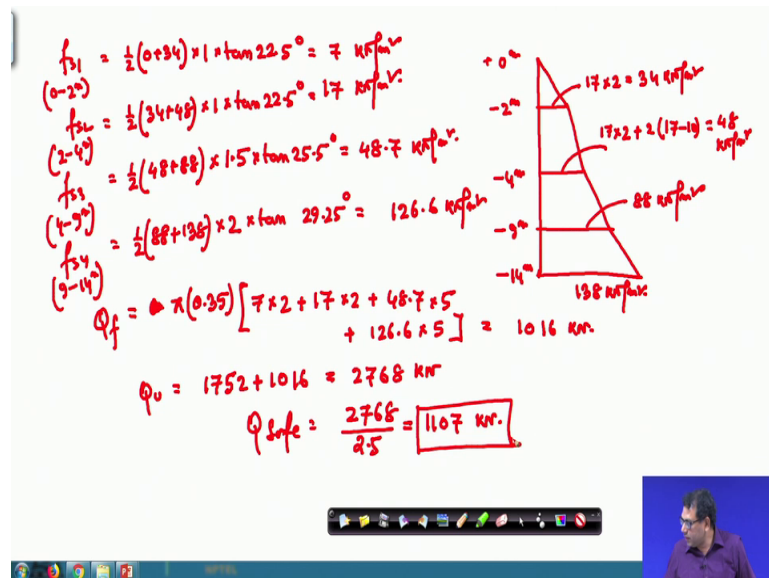 fs1 = 1/2(0+34) × 1 × tan 22.5° = 7 kN/m²
(0-2m)
fs2 = 1/2(34+48) × 1 × tan 22.5° = 17 kN/m²
(2-4m)
fs3 = 1/2(48+88) × 1.5 × tan 25.5° = 48.7 kN/m²
(4-9m)
fs4 = 1/2(88+138) × 2 × tan 29.25° = 126.6 kN/m²
(9-14m)
Qf = π(0.35) [7×2 + 17×2 + 48.7×5
+ 126.6×5] = 1016 kN.
Qu = 1752 + 1016 = 2768 kN
Qsafe = 2768/2.5 = 1107 kN.
±0m
17×2 = 34 kN/m²
-2m
17×2 + 2(17-10) = 48
kN/m²
-4m
88 kN/m²
-9m
-14m
138 kN/m².
NPTEL